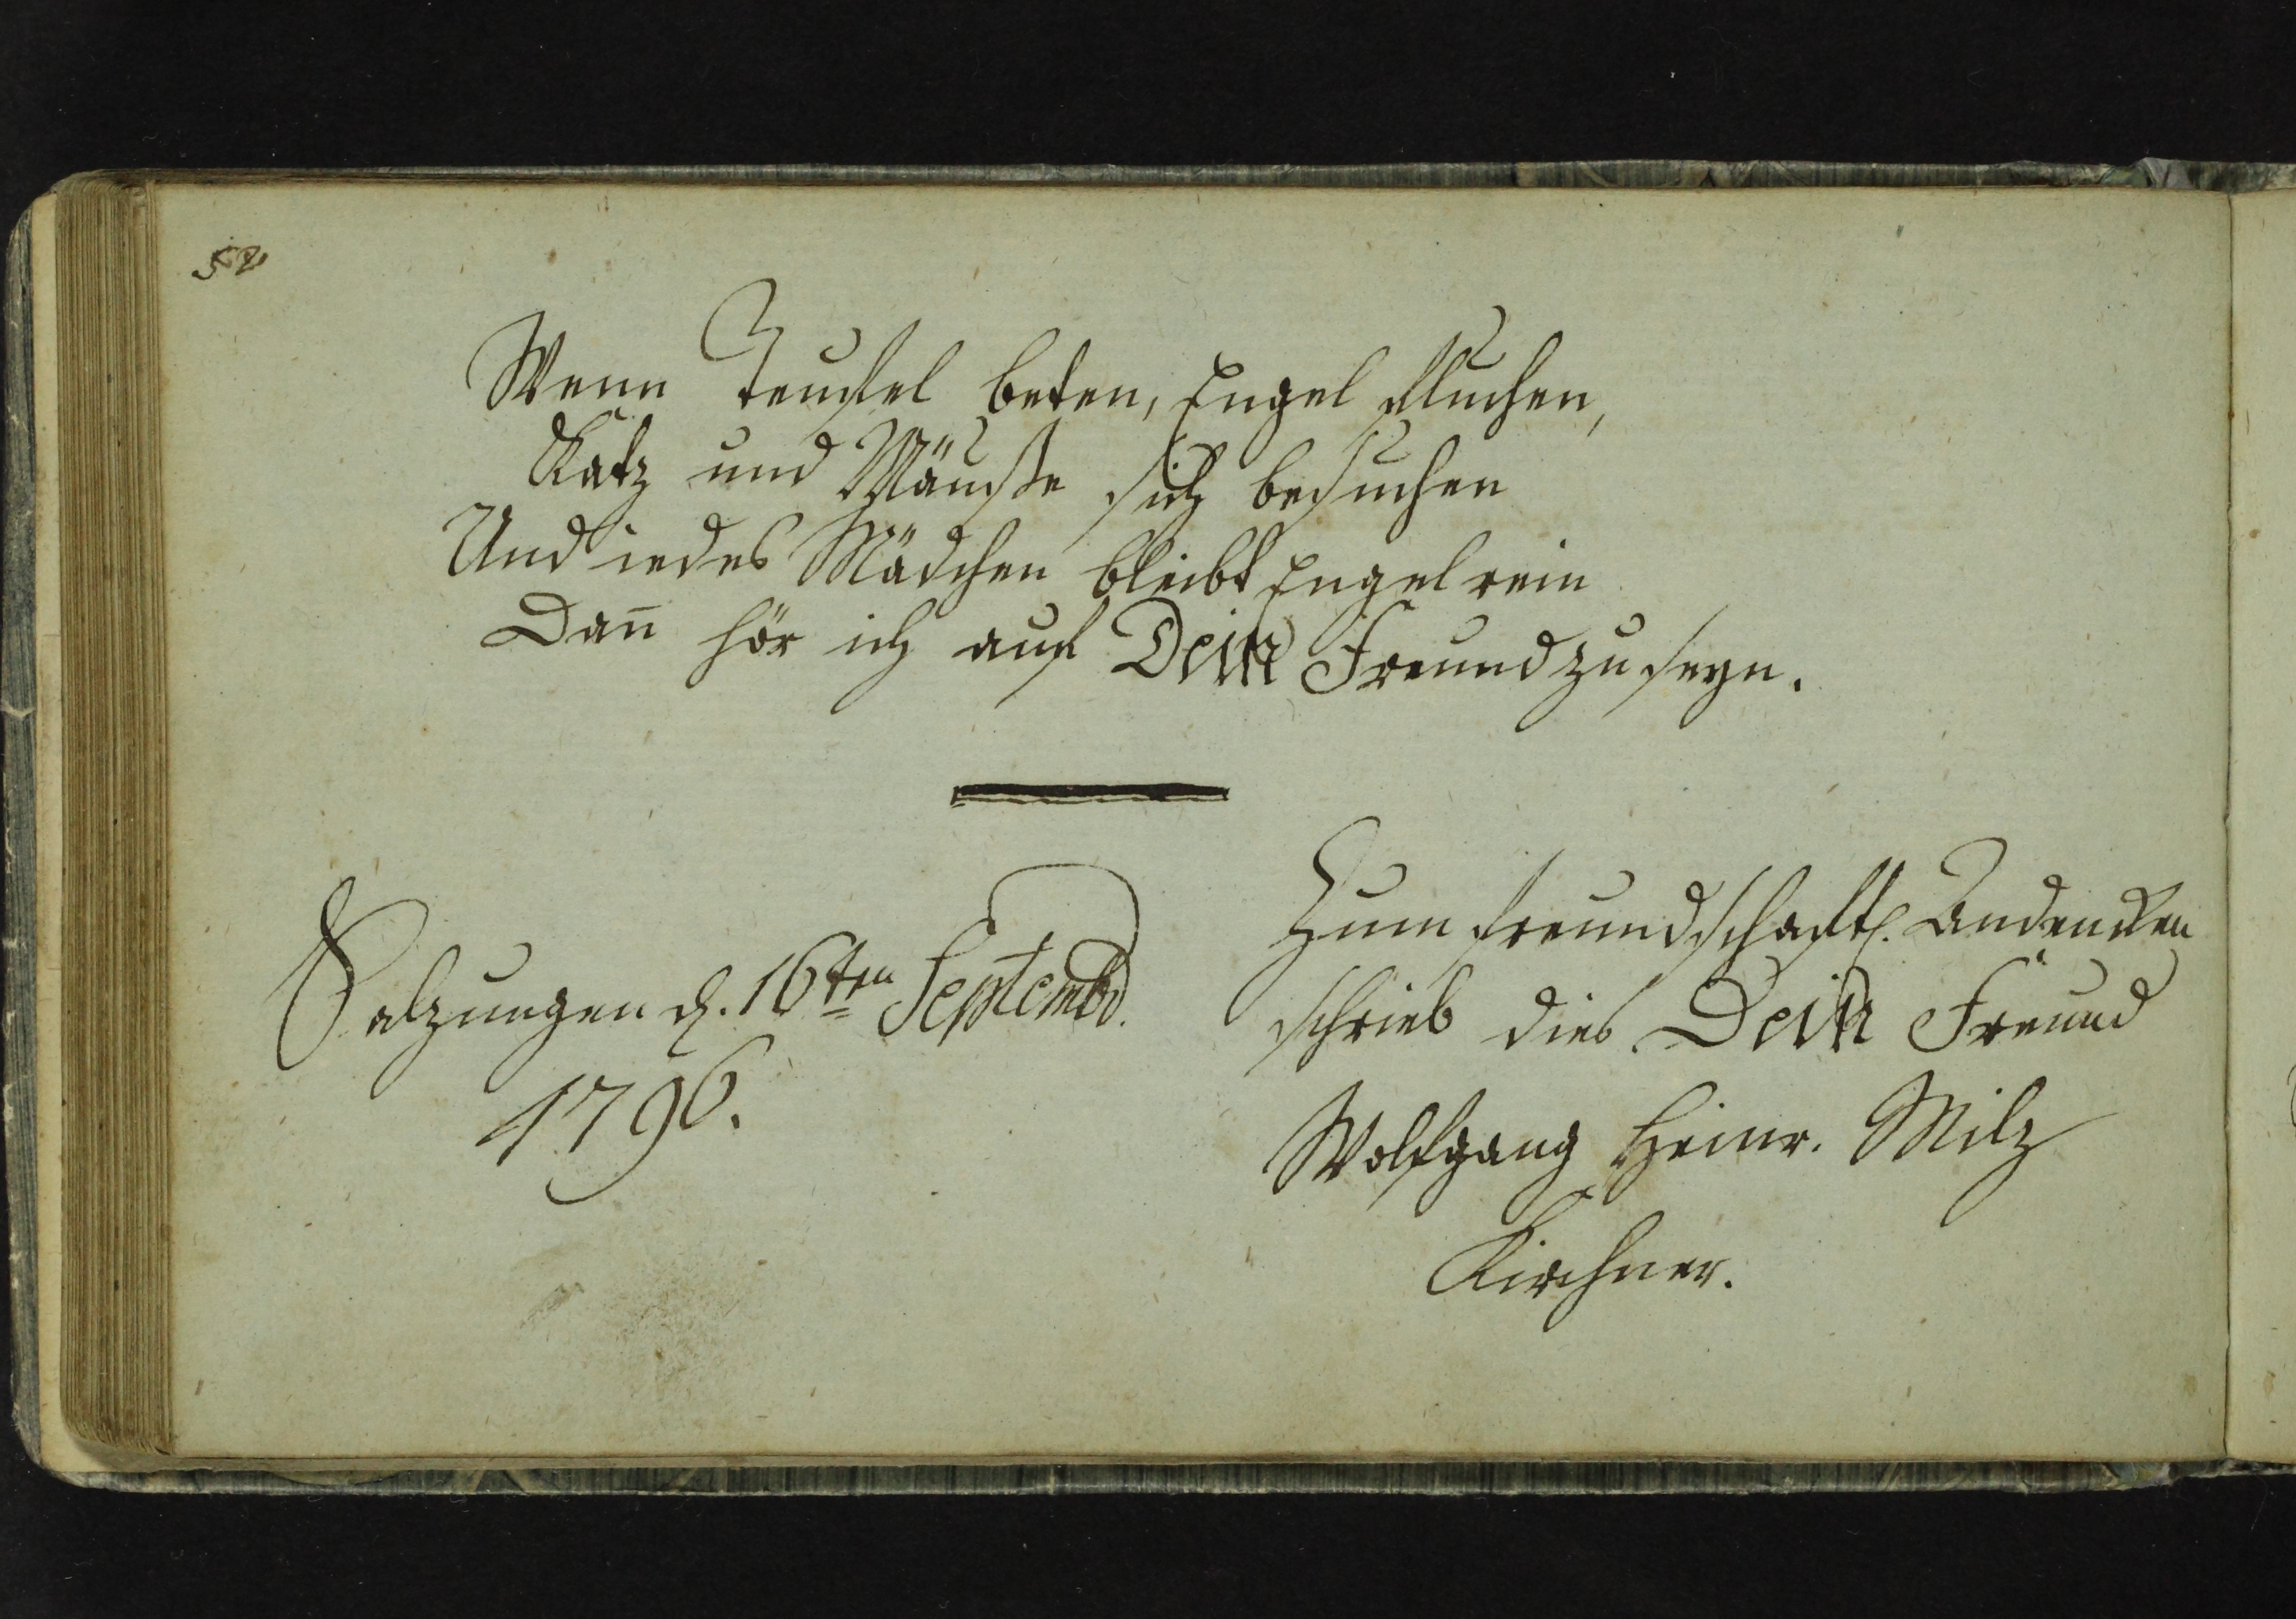 52
Wenn Teufel beten, Engel fluchen,
Katz und Mäuse sich besuchen
Und iedes Mädchen bleibt Engel rein
Dan̄ hör ich auf Dein Freund zu seyn.
Salzungen d. 16ten Septembr.
1796.
Zum freundschaftl. Andencken
schrieb dies Dein Freund
Wolfgang Heinr. Milz
Kirchner.